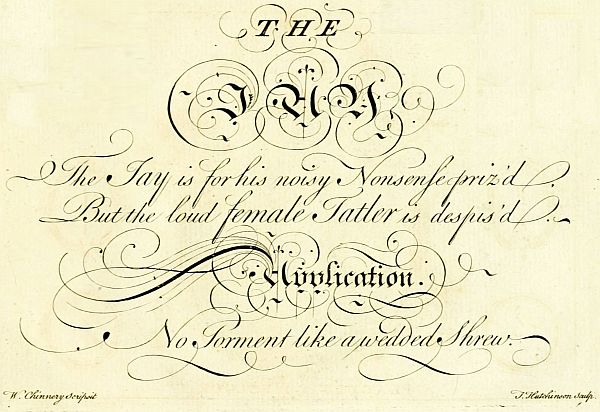 THE
JAY.
The Jay is for his noisy Nonsenſe priz'd.
But the loud female Tatler is despis'd.
Application.
No Torment like a wedded Shrew.
W. Chinnery Scripsit
J. Hutchinson sculp.